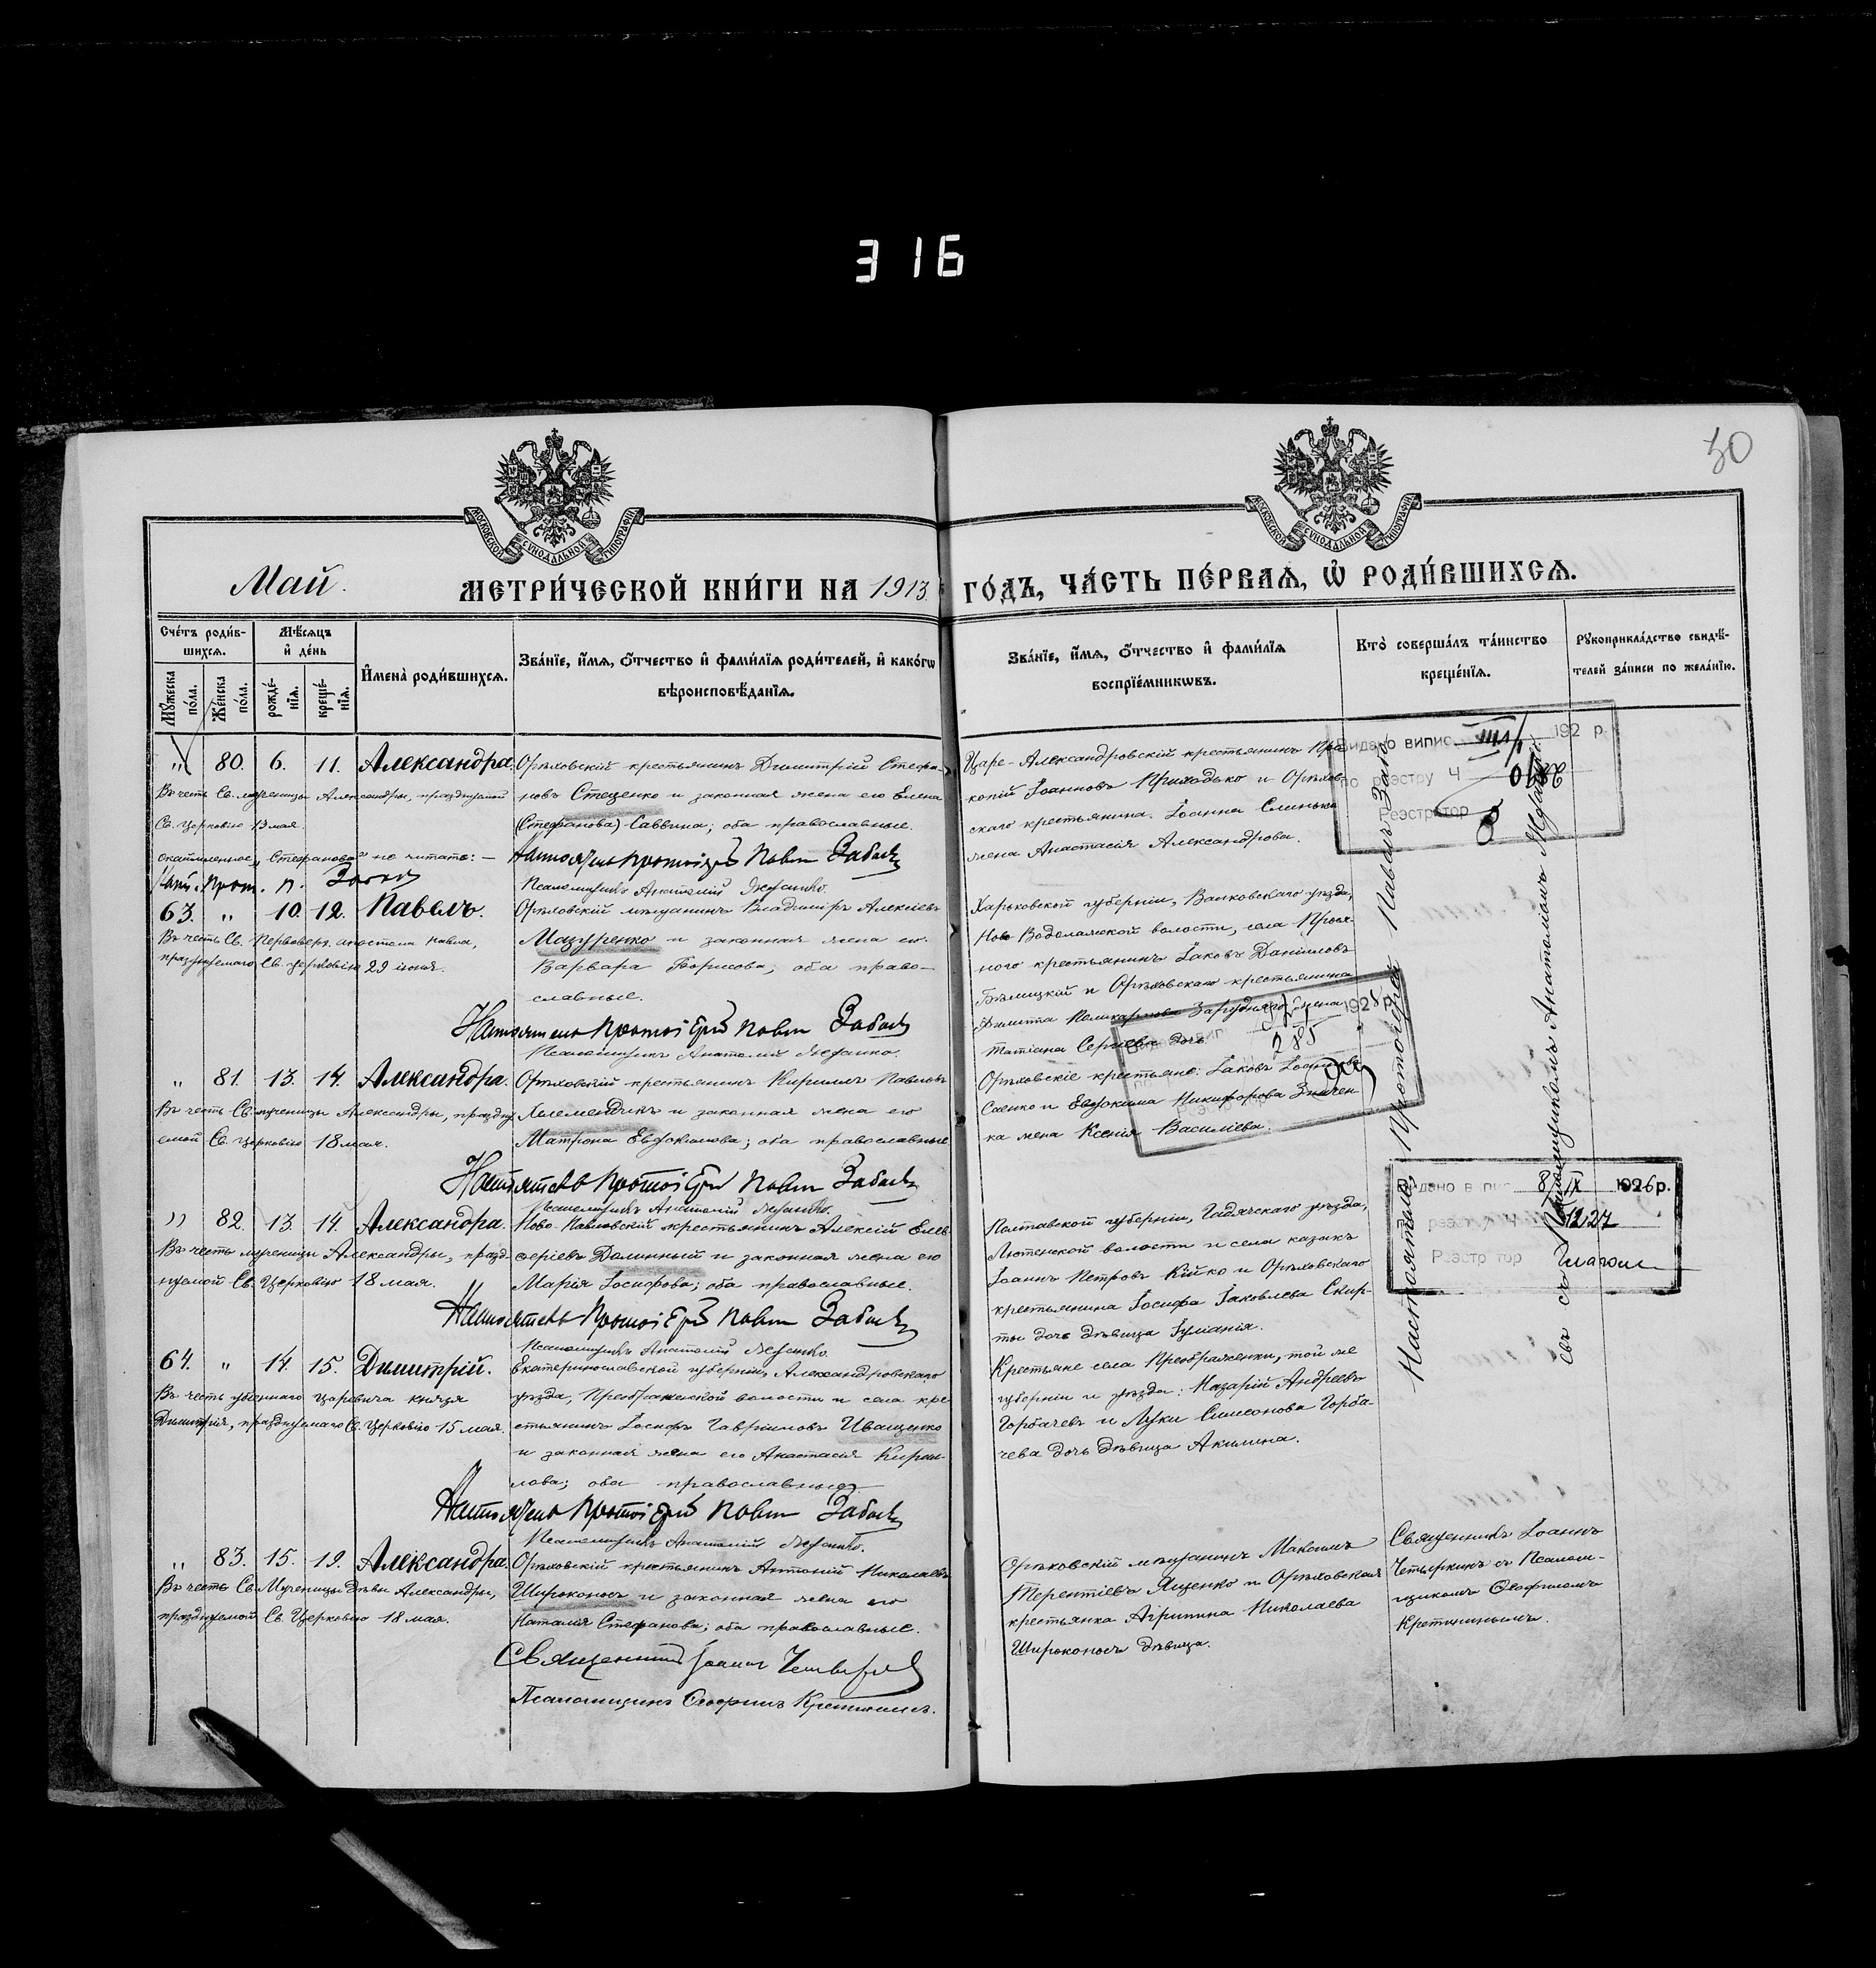 316
50
МОСКОВСКОЙ СѴНОДАЛЬНОЙ ТИПОГРАФІИ
МОСКОВСКОЙ СѴНОДАЛЬНОЙ ТИПОГРАФІИ
Май.
МЕТРИ́ЧЕСКОЙ КНИ́ГИ НА 1913
ГО́ДЪ, ЧА́СТЬ ПЕ́РВАѦ, Ѡ҆ РОДИ́ВШИХСѦ.
Сче́тъ роди́в-
шихсѧ.
Мѣ́сѧцъ
и҆ де́нь
Мꙋ́жеска по́ла.
Же́нска по́ла.
рожде́-
нїѧ.
креще́-
нїѧ.
И҆мена̀ роди́вшихсѧ.
Зва́нїе, и҆́мѧ, ѻ҆́тчество и҆ фамі́лїѧ роди́телей, и҆ како́гѡ
вѣроисповѣ́данїѧ.
Зва́нїе, и҆́мѧ, ѻ҆́тчество и҆ фамі́лїѧ
воспрїе́мникѡвъ.
Кто̀ соверша́лъ та́инство
креще́нїѧ.
Рꙋкоприкла́дство свидѣ́-
телей за́писи по жела́нїю.
" 80. 6. 11. Александра.
Въ честь Св. мученицы Александры, празднуемой
Св. Церковію 18 мая.
окаймленное „Стефанова" не читать: —
Орѣховскій крестьянинъ Димитрій Стефа-
новъ Стеценко и законная жена его Елена
(Стефанова) Саввина; оба православные.
Настоятель Протоіерей Павелъ
Псаломщикъ Анатолій
Царе-Александровскій крестьянинъ Про-
копій Іоанновъ Приходько и Орѣхов-
скаго крестьянина Іоанна Слинько
жена Анастасія Александрова.
63. " 10. 12. Павелъ.
Въ честь Св. Первоверх. апостола Павла,
празднуемаго Св. Церковію 29 іюня.
Орѣховскій мѣщанинъ Владиміръ Алексіевъ
Мазуренко и законная жена его
Варвара Борисова; оба право-
славные.
Настоятель Протоіерей Павелъ
Псаломщикъ Анатолій
Харьковской губерніи, Валковскаго уѣзда,
Ново Водолажской волости, села
крестьянинъ Іаковъ Даніиловъ
Бѣлицкій и Орѣховскаго крестьянина
Филиппа Поликарпова
Татіана Сергіева дочь.
" 81. 13. 14. Александра.
Въ честь Св. мученицы Александры, праздну-
емой Св. Церковію 18 мая.
Орѣховскій крестьянинъ Кириллъ Павловъ
Хелемендикъ и законная жена его
Матрона Евфимова; оба православные
Настоятель Протоіерей Павелъ
Псаломщикъ Анатолій
Орѣховскіе крестьяне: Іаковъ
Саенко и Никифорова Значен-
ка жена Ксенія Василіева.
" 82. 13. 14. Александра.
Въ честь мученицы Александры, празд-
нуемой Св. Церковію 18 мая.
Ново-Павловскій крестьянинъ Алексій Елев-
феріевъ Долинный и законная жена его
Марія Іосифова; оба православные.
Настоятель Протоіерей Павелъ
Псаломщикъ Анатолій
Полтавской губерніи, Гадячскаго уѣзда,
Лютенской волости и села казакъ
Іоаннъ Петровъ Кійко и Орѣховскаго
крестьянина Іосифа Іаковлева Скир-
ты дочь дѣвица Іуліанія.
64. " 14. 15. Димитрій.
Въ честь убіеннаго царевича князя
Димитрія, празднуемаго Св. Церковію 15 мая.
Екатеринославской губерніи, Александровскаго
уѣзда, Преображенской волости и села кре-
стьянинъ Іосифъ Гавріиловъ Иващенко
и законная жена его Анастасія Кирил-
лова; оба православные.
Настоятель Протоіерей Павелъ
Псаломщикъ Анатолій
Крестьяне села Преображенки, той же
губерніи и уѣзда: Назарій Андреевъ
Горбачевъ и Луки Симеонова Горба-
чева дочь дѣвица Акилина.
" 83. 15. 19. Александра.
Въ честь Св. Мученицы Дѣвы Александры,
празднуемой Св. Церковію 18 мая.
Орѣховскій крестьянинъ Антоній Николаевъ
Широконосъ и законная жена его
Наталія Стефанова; оба православные.
Священникъ Іоаннъ
Псаломщикъ Ѳеофилъ Кретининъ.
Орѣховскій мѣщанинъ Максимъ
Терентіевъ Яценко и Орѣховская
крестьянка Агрипина Николаева
Широконосъ дѣвица.
Священникъ Іоаннъ
Четыркинъ съ Псалом-
щикомъ Ѳеофиломъ
Кретининымъ.
Настоятель, Протоіерей Павелъ
съ Псаломщикомъ Анатоліемъ
Видано випис 192 р.
по реэстру Ч
Реэстратор
192 р.
285
Видано випис 8/IX 1926р.
по реэстру Ч 1227
Реэстратор